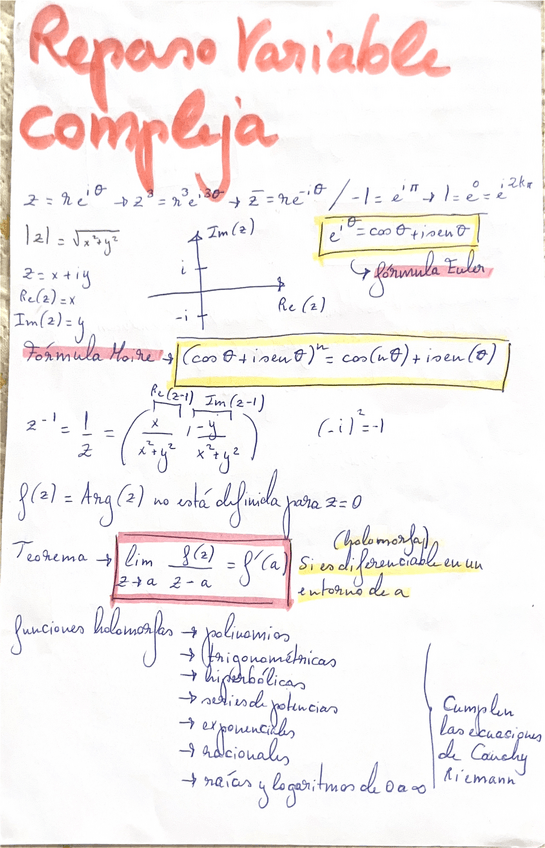 Repaso Variable
compleja
z = re^{iθ} → z³ = r³e^{i3θ} → z̄ = re^{-iθ} / -1 = e^{iπ} → 1 = e^0 = e^{i2kπ}
|z| = √(x²+y²)
Im(z)
e^{iθ} = cosθ + isenθ
i
z = x + iy
↳ fórmula Euler
Re(z) = x
Re(z)
Im(z) = y
-i
Fórmula Moire → (cosθ + isenθ)^n = cos(nθ) + isen(θ)
Re(z-1) Im(z-1)
z^{-1} = 1/z = (x/(x²+y²), -y/(x²+y²))
(-i)² = -1
f(z) = Arg(z) no está definida para z = 0
(holomorfa)
Teorema → lim_{z→a} f(z)/(z-a) = f'(a) Si es diferenciable en un
entorno de a
funciones holomorfas → polinomios
→ trigonométricas
→ hiperbólicas
→ series de potencias
→ exponenciales
→ racionales
→ raíces y logaritmos de 0 a ∞
Cumplen
las ecuaciones
de Cauchy
Riemann